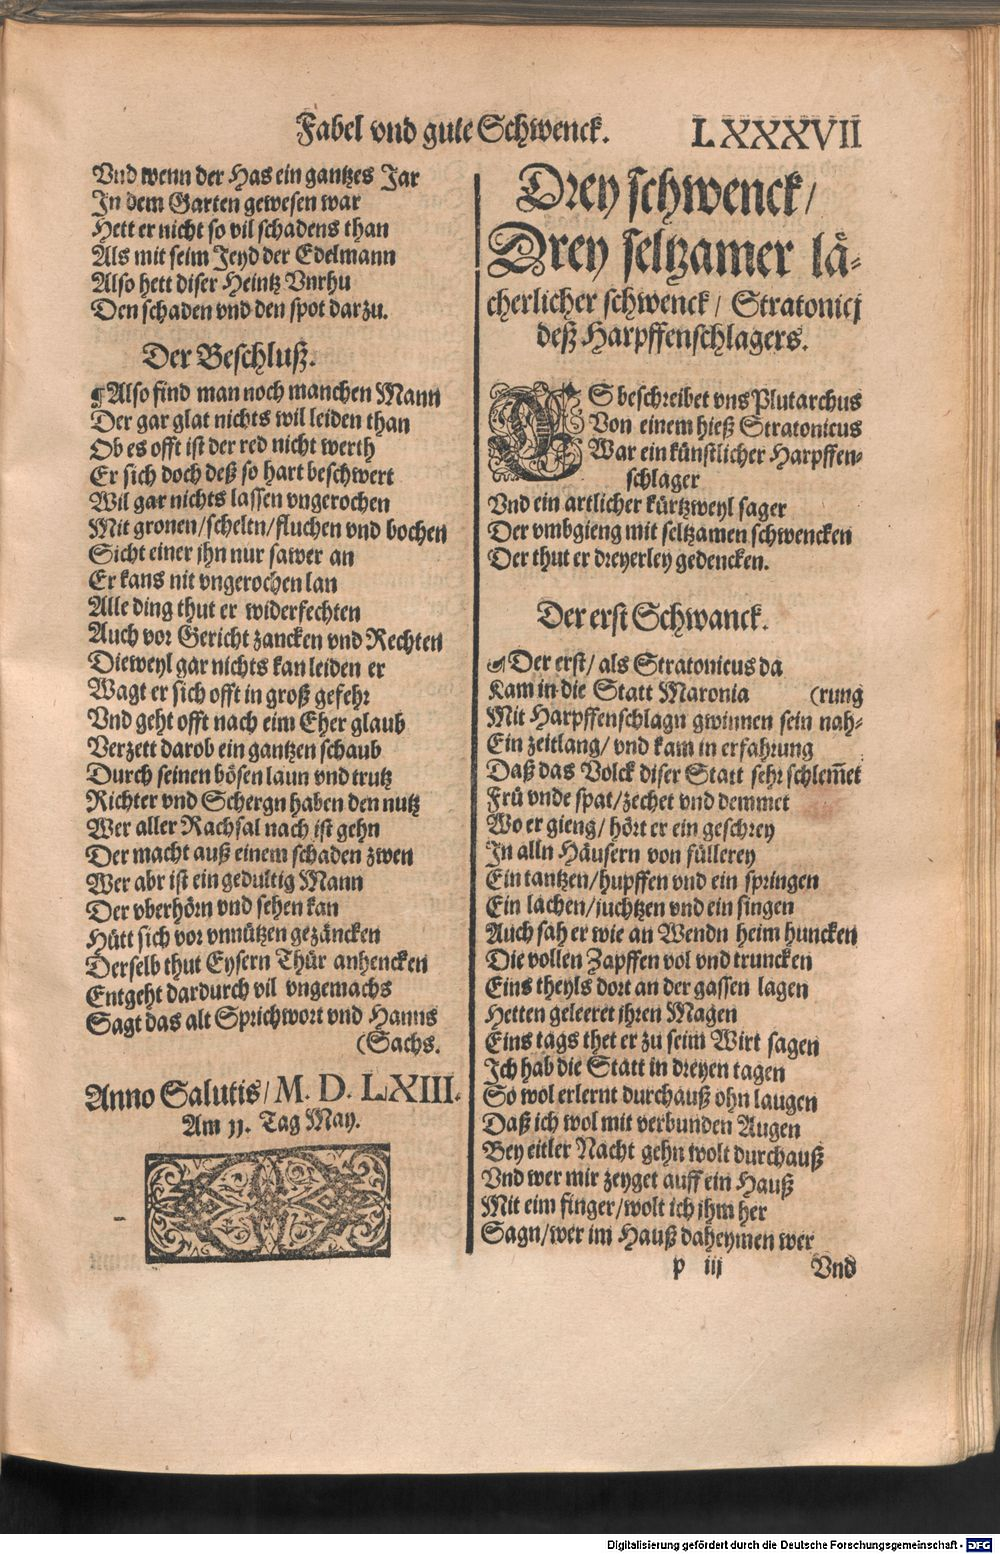 Fabel vnd gute Schwenck. LXXXVII
Vnd wenn der Has ein gantzes Jar
In dem Garten gewesen war
Hett er nicht so vil schadens than
Als mit seim Jeyd der Edelmann
Also hett diser Heintz Vnrhu
Den schaden vnd den spot darzu.
Der Beschluß.
¶ Also find man noch manchen Mann
Der gar glat nichts wil leiden than
Ob es offt ist der red nicht werth
Er sich doch deß so hart beschwert
Wil gar nichts lassen vngerochen
Mit gronen/scheltn/fluchen vnd bochen
Sicht einer jhn nur sawer an
Er kans nit vngerochen lan
Alle ding thut er widerfechten
Auch vor Gericht zancken vnd Rechten
Dieweyl gar nichts kan leiden er
Wagt er sich offt in groß gefehr
Vnd geht offt nach eim Eher glaub
Verzett darob ein gantzen schaub
Durch seinen bösen laun vnd trutz
Richter vnd Schergn haben den nutz
Wer aller Rachsal nach ist gehn
Der macht auß einem schaden zwen
Wer abr ist ein gedultig Mann
Der vberhörn vnd sehen kan
Hütt sich vor vnnützen gezäncken
Derselb thut Eysern Thür anhencken
Entgeht dardurch vil vngemachs
Sagt das alt Sprichwort vnd Hanns
(Sachs.
Anno Salutis/ M. D. LXIII.
Am 11. Tag May.
Drey schwenck/
Drey seltzamer lä-
cherlicher schwenck/ Stratonicj
deß Harpffenschlagers.
ES beschreibet vns Plutarchus
Von einem hieß Stratonicus
War ein künstlicher Harpffen-
schlager
Vnd ein artlicher kürtzweyl sager
Der vmbgieng mit seltzamen schwencken
Der thut er dreyerley gedencken.
Der erst Schwanck.
Der erst/ als Stratonicus da
Kam in die Statt Maronia (rung
Mit Harpffenschlagn gwinnen sein nah-
Ein zeitlang/ vnd kam in erfahrung
Daß das Volck diser Statt sehr schlem̃et
Frü vnde spat/zechet vnd demmet
Wo er gieng/ hört er ein geschrey
In alln Häusern von füllerey
Ein tantzen/hupffen vnd ein springen
Ein lachen/juchtzen vnd ein singen
Auch sah er wie an Wendn heim huncken
Die vollen Zapffen vol vnd truncken
Eins theyls dort an der gassen lagen
Hetten geleeret jhren Magen
Eins tags thet er zu seim Wirt sagen
Ich hab die Statt in dreyen tagen
So wol erlernt durchauß ohn laugen
Daß ich wol mit verbunden Augen
Bey eitler Nacht gehn wolt durchauß
Vnd wer mir zeyget auff ein Hauß
Mit eim finger/wolt ich jhm her
Sagn/wer im Hauß daheymen wer
p iij Vnd
Digitalisierung gefördert durch die Deutsche Forschungsgemeinschaft - DFG